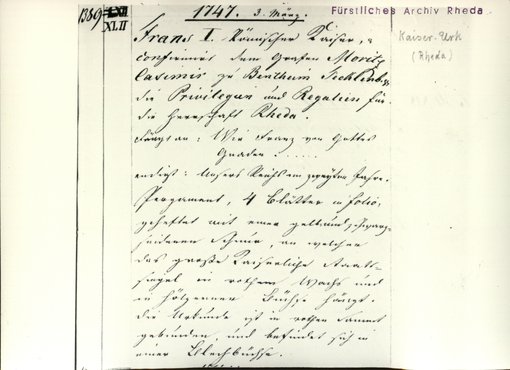 1389
XLII
1747. 3. März.
Fürstliches Archiv Rheda
Kaiser. Urk
(Rheda)
Franz I. Römischer Kaiser,
confirmirt dem Grafen Moritz
Casimir zu Bentheim Tecklenb.
die Privilegien und Regalien für
die Herrschaft Rheda.
Fängt an: Wir Franz von Gottes
Gnaden .....
endigt: Unsers Reichs im zweyten Jahre.
Pergament, 4 Blätter in folio,
geheftet mit einer gelb und schwarz
seidenen Schnur, an welcher
das große Kaiserliche Staats-
siegel in rothem Wachs und
in hölzerner Büchse hängt.
die Urkunde ist in rothen Sammt
gebunden, und befindet sich in
einer Blechbüchse.